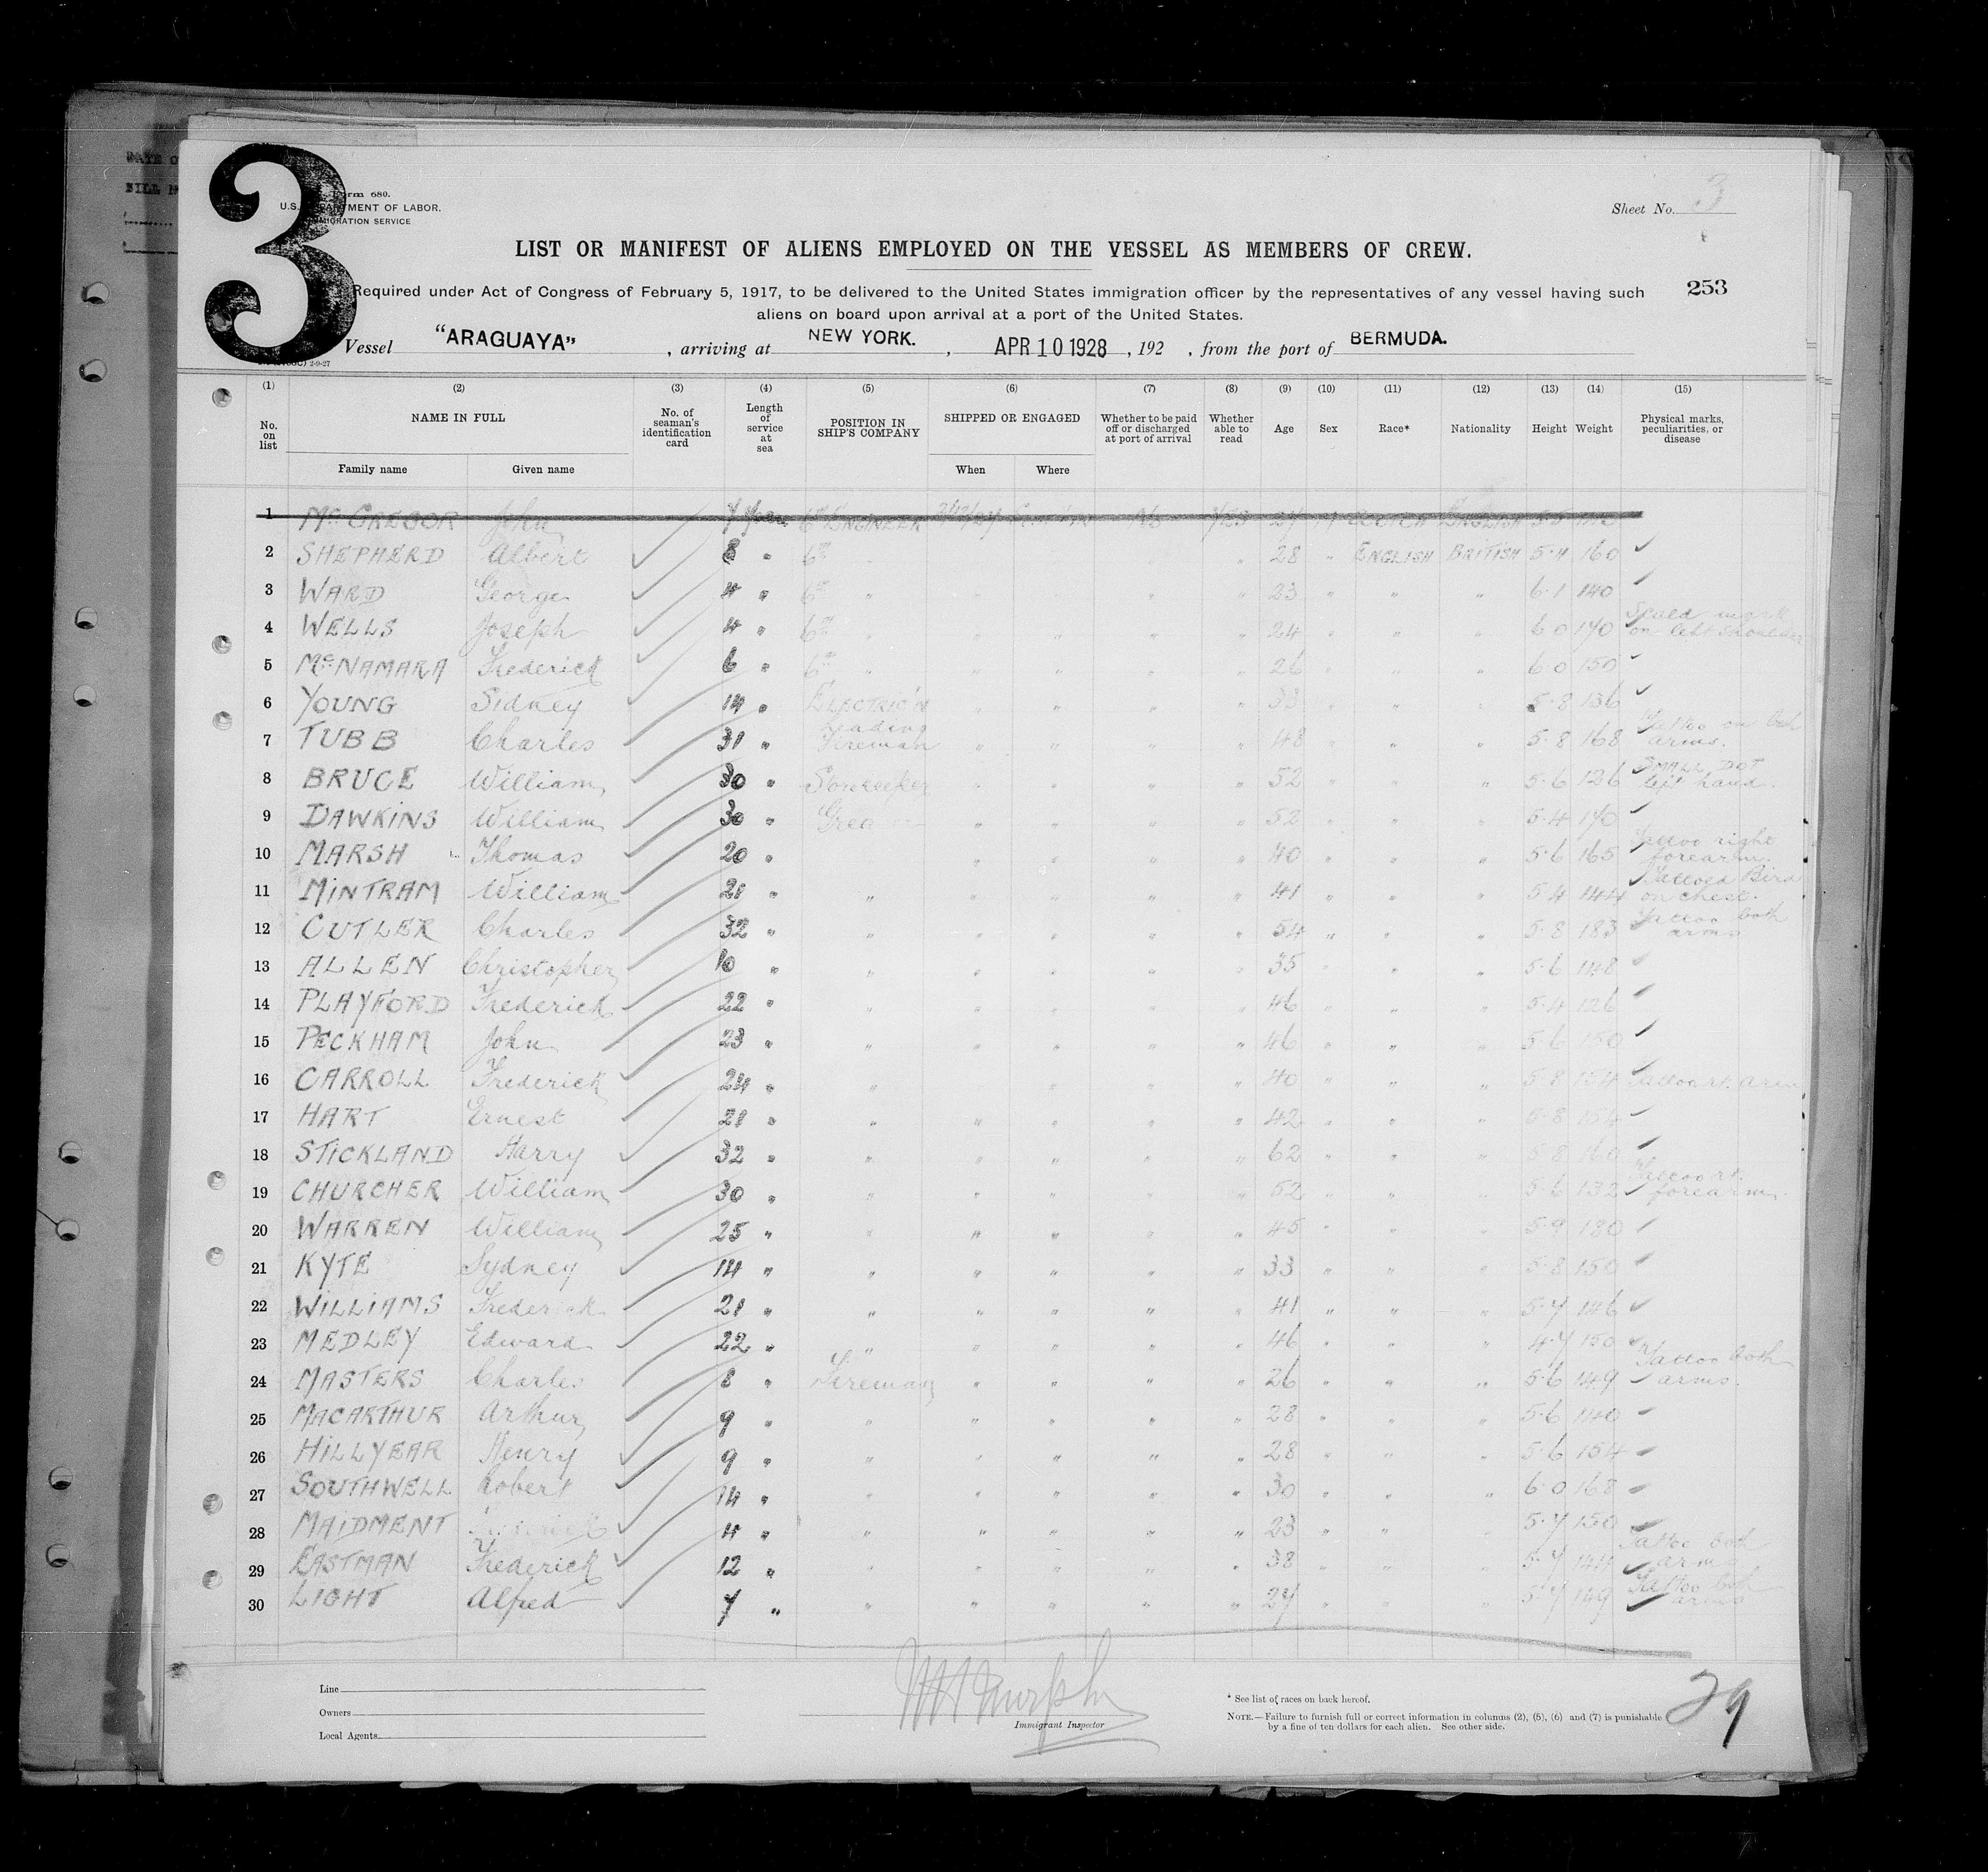 3
Form 680.
U.S. DEPARTMENT OF LABOR.
IMMIGRATION SERVICE
Sheet No. 3
LIST OR MANIFEST OF ALIENS EMPLOYED ON THE VESSEL AS MEMBERS OF CREW.
253
Required under Act of Congress of February 5, 1917, to be delivered to the United States immigration officer by the representatives of any vessel having such
aliens on board upon arrival at a port of the United States.
Vessel "ARAGUAYA", arriving at NEW YORK., APR 10 1928, 192 , from the port of BERMUDA.
(1) (2) (3) (4) (5) (6) (7) (8) (9) (10) (11) (12) (13) (14) (15)
No. on list NAME IN FULL No. of seaman's identification card Length of service at sea POSITION IN SHIP'S COMPANY SHIPPED OR ENGAGED Whether to be paid off or discharged at port of arrival Whether able to read Age Sex Race* Nationality Height Weight Physical marks, peculiarities, or disease
Family name Given name When Where
1 McGREGOR John 6th ENGINEER No
2 SHEPHERD Albert 8 " 6th " 28 " ENGLISH BRITISH 5-11 160
3 WARD George 4 " 6th " 23 " " " 6-1 140
4 WELLS Joseph 4 " 6th " 24 " " " 6-0 170 on left shoulder
5 McNAMARA Frederick 6 " 6th " 26 " " " 6-0 150
6 YOUNG Sidney 14 " ELECTRIC'N 33 " " " 5-8 136
7 TUBB Charles 31 " Leading Fireman 48 " " " 5-8 168 Tattoo on both arms.
8 BRUCE William 30 " Storekeeper 52 " " " 5-6 126 SMALL DOT left hand.
9 DAWKINS William 30 " 52 " " " 5-4 170
10 MARSH Thomas 20 " 40 " " " 5-6 165 Tattoo right forearm.
11 MINTRAM William 21 " " 41 " " " 5-4 144 Tattoed Bird on chest.
12 CUTLER Charles 32 " " 54 " " " 5-8 183 Tattoo both arms
13 ALLEN Christopher 10 " " 35 " " " 5-6 148
14 PLAYFORD Frederick 22 " " 46 " " " 5-4 126
15 PECKHAM John 23 " " 46 " " " 5-6 150
16 CARROLL Frederick 24 " " 40 " " " 5-8 154 Tattoo rt. arm
17 HART Ernest 21 " " 42 " " " 5-8 154
18 STICKLAND Harry 32 " " 62 " " " 5-8 160
19 CHURCHER William 30 " " 52 " " " 5-6 132 Tattoo rt. forearm.
20 WARREN William 25 " " 45 " " " 5-9 180
21 KYTE Sydney 14 " " 33 " " " 5-8 150
22 WILLIAMS Frederick 21 " " 41 " " " 5-7 146
23 MEDLEY Edward 22 " " 46 " " " 4-7 150
24 MASTERS Charles 8 " Fireman 26 " " " 5-6 149 Tattoo both arms.
25 MACARTHUR Arthur 9 " " 28 " " " 5-6 140
26 HILLYEAR Henry 9 " " 28 " " " 5-6 154
27 SOUTHWELL Robert 14 " " 30 " " " 6-0 168
28 MAIDMENT 4 " " 23 " " " 5-7 150
29 EASTMAN Frederick 12 " " 38 " " " 5-7 144 Tattoo both arms
30 LIGHT Alfred 7 " " 27 " " " 5-7 149 Tattoo both arms
Line
Owners
Local Agents
Immigrant Inspector
* See list of races on back hereof.
NOTE.—Failure to furnish full or correct information in columns (2), (5), (6) and (7) is punishable
by a fine of ten dollars for each alien. See other side.
29